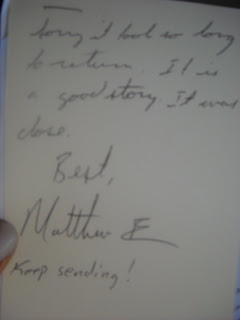 Sorry it took so long
to return. It is
a good story. It was
close.
Best,
Matthew E
Keep sending!